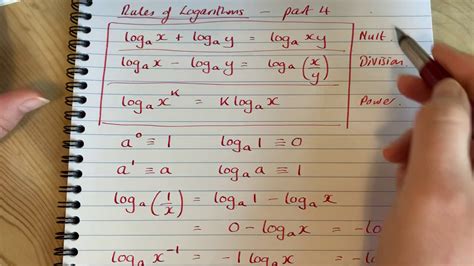 Rules of Logarithms - part 4
logₐx + logₐy = logₐxy Mult.
logₐx - logₐy = logₐ(x/y) Division.
logₐx^K = K logₐx Power.
a⁰ ≡ 1 logₐ1 ≡ 0
a¹ ≡ a logₐa ≡ 1
logₐ(1/x) = logₐ1 - logₐx
= 0 - logₐx = -lo
logₐx⁻¹ = -1 logₐx = -lo